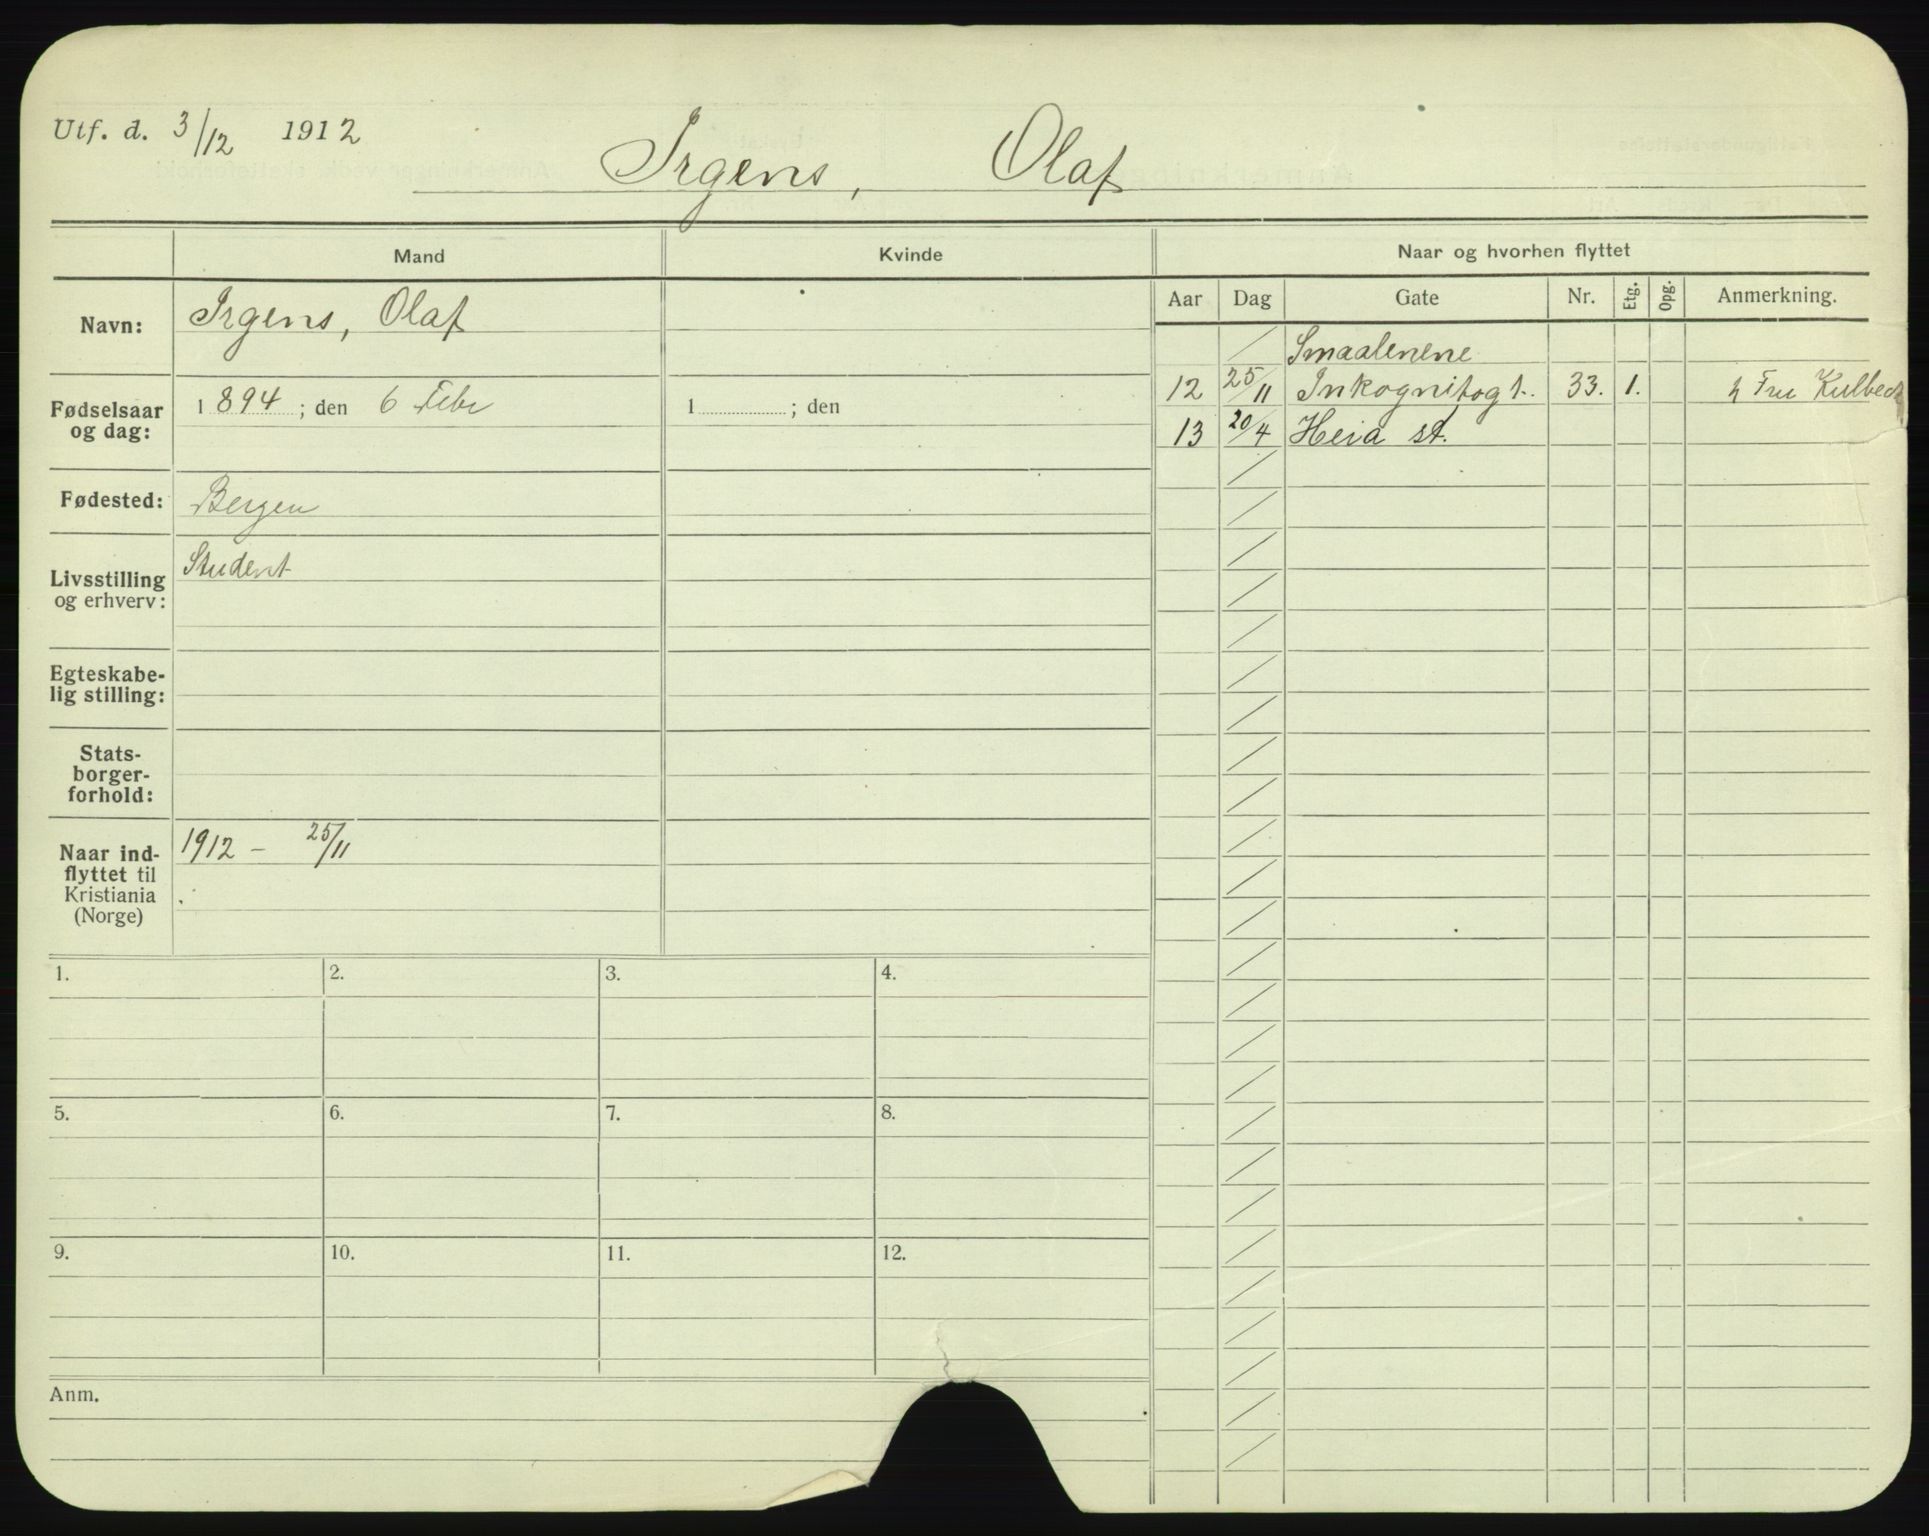 Utf. d. 3/12 1912
Irgens, Olaf
Mand
Kvinde
Naar og hvorhen flyttet
Aar Dag Gate Nr. Etg. Opg. Anmerkning.
Navn: Irgens, Olaf
Smaalenene
12 25/11 Inkognitogt. 33. 1. Fru Kulbeck
13 20/4 Heia st.
Fødselsaar og dag: 1894; den 6 Febr
1 ; den
Fødested: Bergen
Livsstilling og erhverv: Student
Egteskabe-
lig stilling:
Stats-
borger-
forhold:
Naar ind-
flyttet til
Kristiania
(Norge)
1912 - 25/11
1. 2. 3. 4.
5. 6. 7. 8.
9. 10. 11. 12.
Anm.